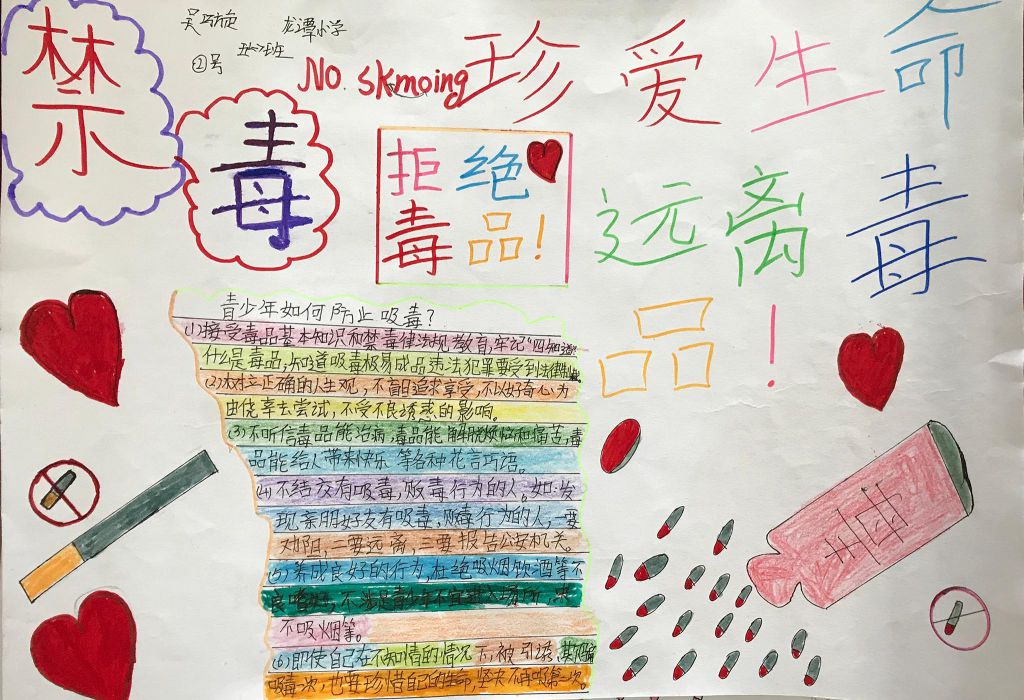 禁毒
龙潭小学
②号
NO. skmoing
珍爱生命
远离毒品!
拒绝
毒品!
青少年如何防止吸毒?
(1)接受毒品基本知识和禁毒律法规教育,牢记"四知道"
什么是毒品,知道吸毒极易成品违法犯罪要受到法律制裁。
(2)树立正确的人生观,不盲目追求享受,不以好奇心为
由侥幸去尝试,不受不良诱惑的影响。
(3)不听信毒品能治病,毒品能解脱烦恼和痛苦,毒
品能给人带来快乐等各种花言巧语。
(4)不结交有吸毒,贩毒行为的人。如发
现亲朋好友有吸毒,贩毒行为的人,一要
劝阻,二要远离,三要报告公安机关。
(5)养成良好的行为,杜绝吸烟饮酒等不
良嗜好,不涉足青少年不宜进入场所,决
不吸烟等。
(6)即使自己在不知情的情况下,被引诱、欺骗
吸毒一次,也要珍惜自己的生命,坚决不再吸第二次。
毒